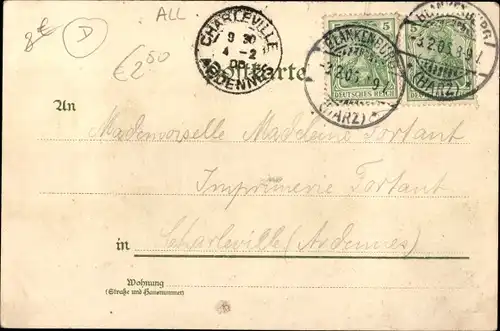 D
ALL
€2.50
CHARLEVILLE
9 30
4 - 2
05
ARDENNES
Postkarte
5
DEUTSCHES REICH
BLANKENBURG
3.2.05
(HARZ)
DEUTSCHES REICH
BLANKENBURG
3.2.05. 8-9 V
(HARZ)
An
Mademoiselle Madeleine Tortant
Imprimerie Tortant
in Charleville (Ardennes)
Wohnung
(Straße und Hausnummer)